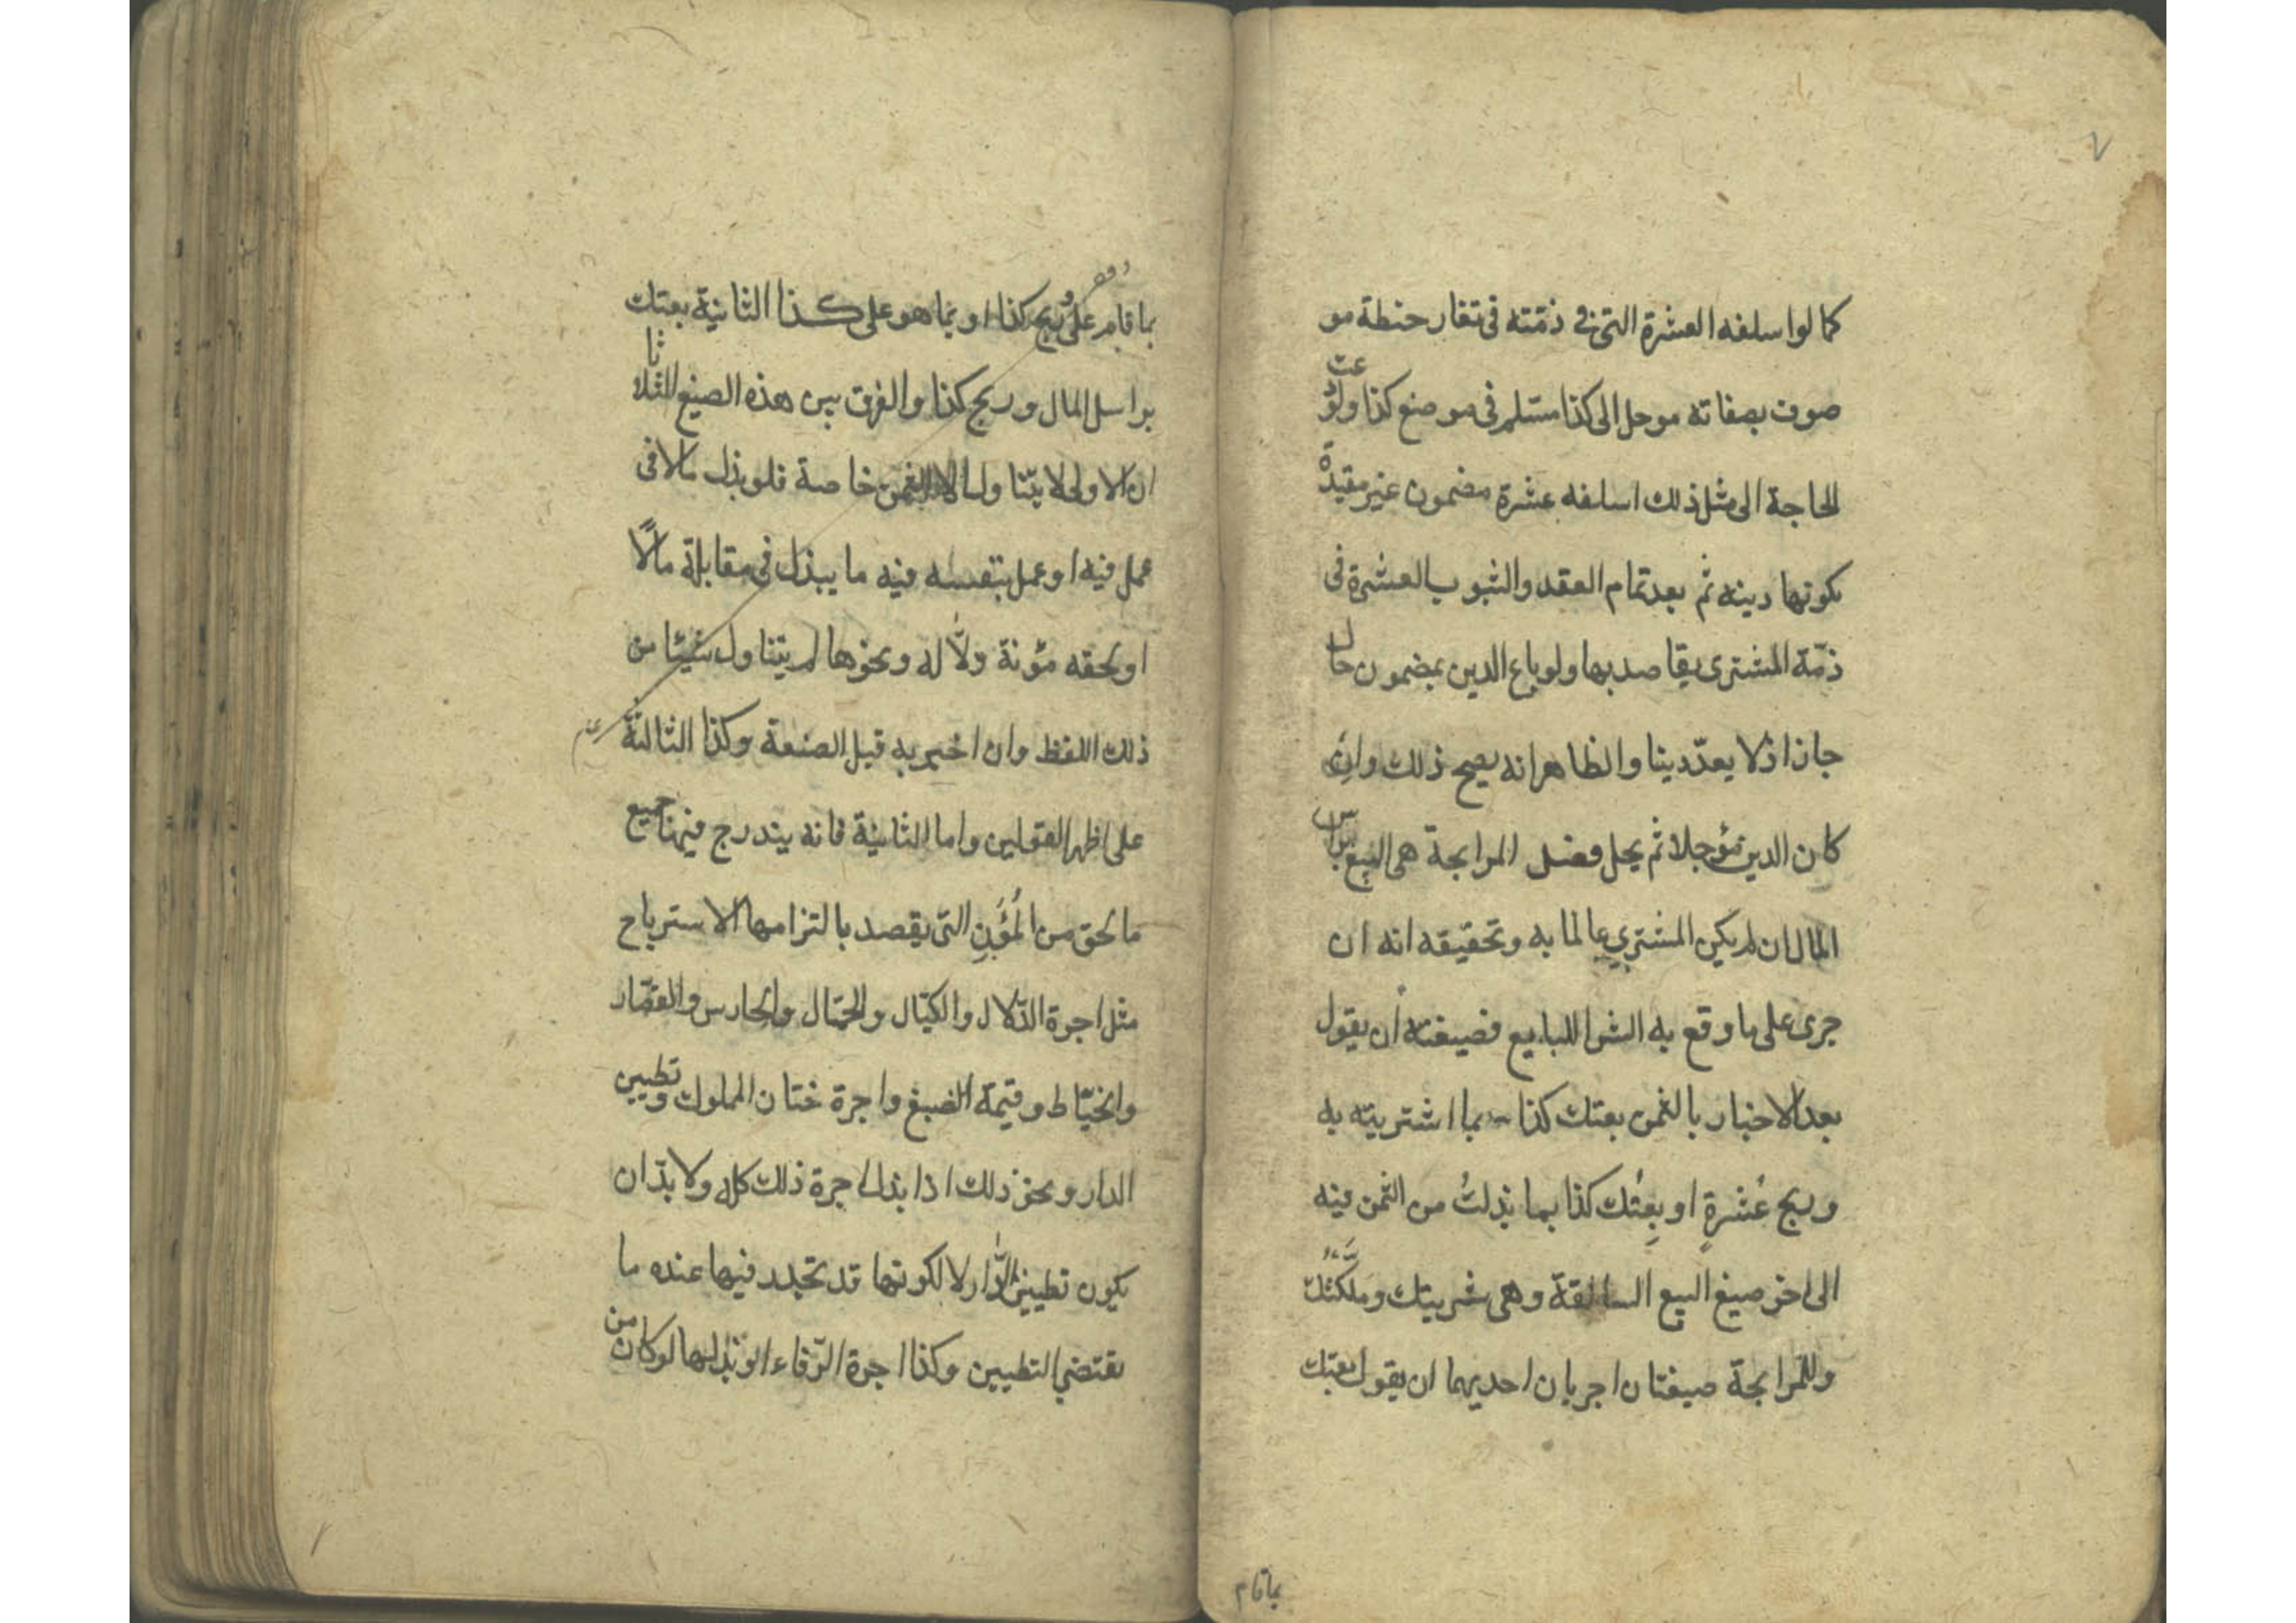 ٧
كما لو اسلفه العشرة التى فى ذمّته فى تغار حنطة مو
صوف بصفاته موجل الى كذا مستلم فى موضع كذا ولو دعت
الحاجة الى مثل ذلك اسلفه عشرة مضمون غير مقيدة
بكونها دينه ثم بعد تمام العقد والثبوب العشرة فى
ذمّة المشترى يقاصد بها ولو باع الدين بمضمون حال
جاز اذ لا يعدّ دينا والظاهر انه يصح ذلك وان
كان الدين مؤجلا ثم يحل فصل المرابحة هى البيع براس
المال ان لم يكن المشتري عالما به وتحقيقه انه ان
جرى على ما وقع به الشرا للبايع فصيغته أن يقول
بعد الاخبار بالثمن بعتك كذا بما اشتريته به
وربح عُشرةٍ او بِعتُك كذا بما بذلتُ من الثمن فيه
الى اخر صيغ البيع السالقة وهى شريتك وملّكتُك
وللمرابحة صيغتان اجريان احديهما ان يقول بعتك
بما قام
بما قام علىّ وربح كذا او بما هو على كذا الثانية بعتك
براسل المال وربح كذا والفرق بين هذه الصيغ الثلاثا
ان الاولى لا يتنا ول الا الثمن خاصة فلو بذل مالا فى
عمل فيه او عمل بنفسه فيه ما يبذل فى مقابلة مالًا
او لحقه مؤنة ولّاله ونحوها لم يتناول شيئا من
ذلك اللفظ وان اخبر به قبل الصنعة وكذا الثالثة
على اظهر القولين واما الثانية فانه يندرج فيها جميع
ما لحق من المُؤَنِ التى يقصد بالتزامها الاسترباح
مثل اجرة الدّلال والكيّال والحمّال والحارس والقصّار
والخيّاط وقيمة الصبغ واجرة ختان المملوك وتطيين
الدار ونحو ذلك اذا بذل اجرة ذلك كله ولا بدّ ان
يكون تطيين الدّار لا لكونها قد تجدد فيها عنده ما
يقتضي التطيين وكذا اجرة الرّفاء انو بذلها لو كان من